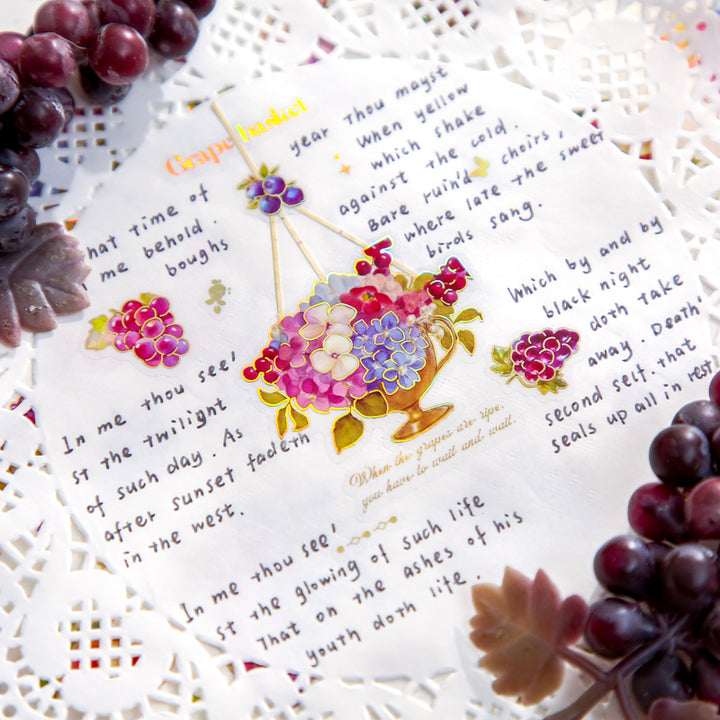 Grape basket
hat time of
me behold.
boughs
year thou mayst
When yellow
which shake
against the cold.
Bare ruin'd choirs,
where late the sweet
birds sang.
Which by and by
black night
doth take
away. Death'
second self. that
seals up all in rest
In me thou see'
st the twilight
of such day. As
after sunset fadeth
in the west.
When the grapes are ripe,
you have to wait and wait.
In me thou see'
st the glowing of such life
That on the ashes of his
youth doth life.